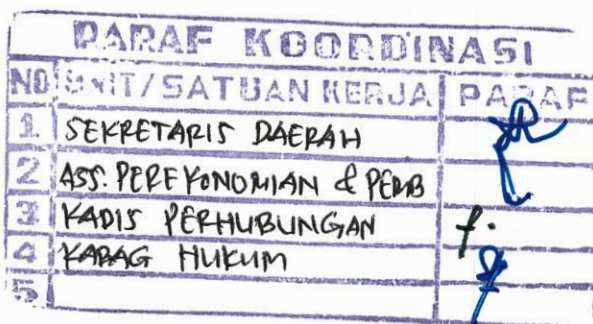 PARAF KOORDINASI
NO UNIT/SATUAN KERJA PARAF
1 SEKRETARIS DAERAH
2 ASS. PEREKONOMIAN & PEMB
3 KADIS PERHUBUNGAN
4 KABAG HUKUM
5